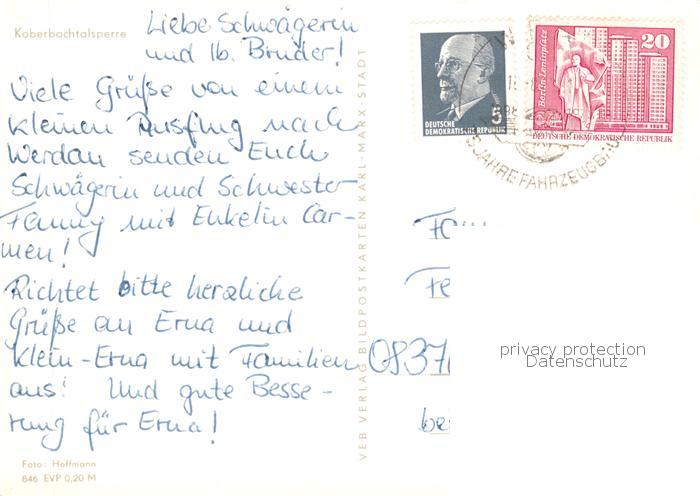 Koberbachtalsperre
Liebe Schwägerin
und lb. Bruder!
Viele Grüße von einem
kleinen Ausflug nach
Werdau senden Euch
Schwägerin und Schwester
Fanny mit Enkelin Car-
men!
Richtet bitte herzliche
Grüße an Erna und
Klein-Erna mit Familien
aus! Und gute Besse-
rung für Erna!
Foto: Hoffmann
846 EVP 0,20 M
VEB VERLAG BILDPOSTKARTEN KARL-MARX-STADT
5
DEUTSCHE
DEMOKRATISCHE REPUBLIK
Berlin·Leninplatz
20
DEUTSCHE DEMOKRATISCHE REPUBLIK
JAHRE FAHRZEUGBAU
Fa
Fe
be
privacy protection
Datenschutz